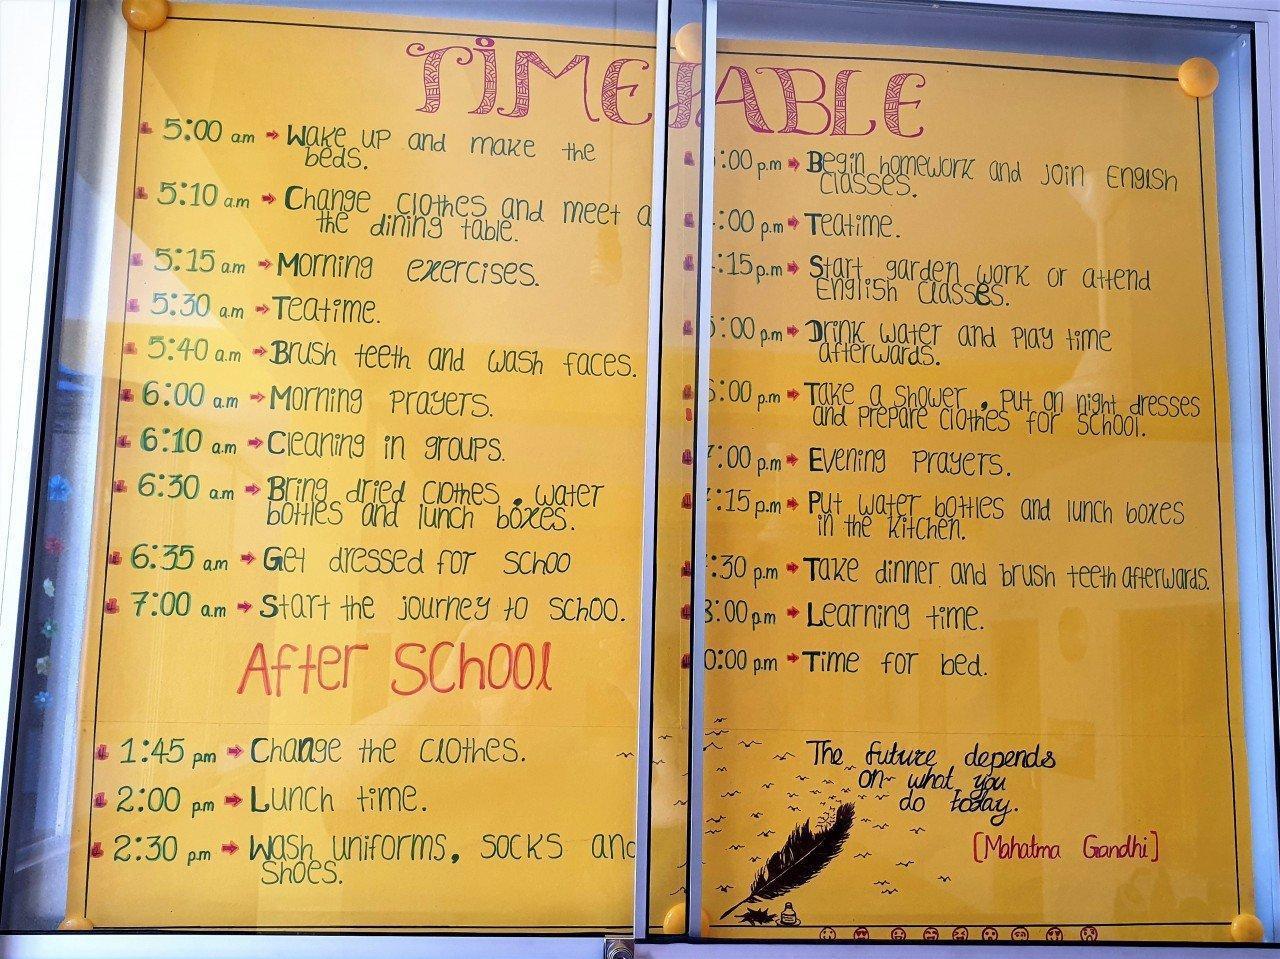 TIMETABLE
5:00 am → Wake up and make the
beds.
5:10 a.m → Change clothes and meet a
the dining table.
5:15 a.m → Morning exercises.
5:30 a.m → Teatime.
5:40 a.m → Brush teeth and wash faces.
6:00 a.m → Morning prayers.
6:10 a.m → Cleaning in groups.
6:30 a.m → Bring dried clothes, water
bottles and lunch boxes.
6:35 a.m → Get dressed for schoo
7:00 a.m → Start the journey to schoo.
After School
1:45 pm → Change the clothes.
2:00 p.m → Lunch time.
2:30 p.m → Wash uniforms, socks and
shoes.
:00 p.m → Begin homework and join English
classes.
:00 p.m → Teatime.
:15 p.m → Start garden work or attend
English classes.
5:00 p.m → Drink water and play time
afterwards.
6:00 p.m → Take a shower, put on night dresses
and prepare clothes for school.
7:00 p.m → Evening prayers.
:15 p.m → Put water bottles and lunch boxes
in the kitchen.
:30 p.m → Take dinner and brush teeth afterwards.
8:00 p.m → Learning time.
0:00 p.m → Time for bed.
The future depends
on what you
do today.
[Mahatma Gandhi]